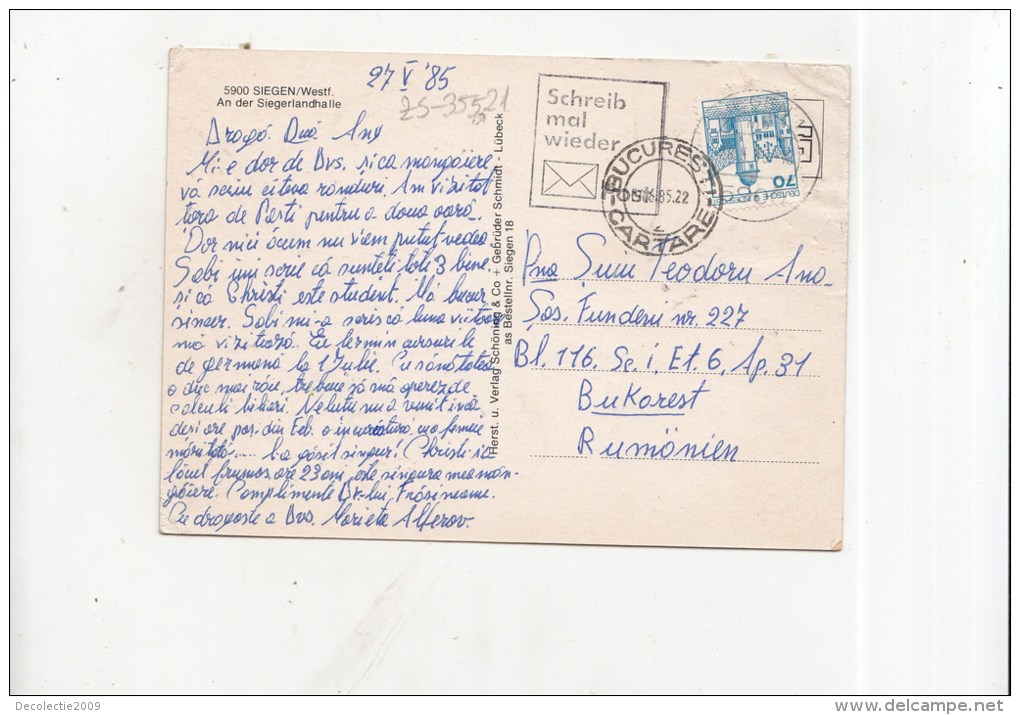 27 V '85
5900 SIEGEN/Westf.
An der Siegerlandhalle
ZS-35521
Dragă Dnă Any
Mi-e dor de Dvs. și ca mângâiere
vă scriu câteva rânduri. Am vizitat
Dor nici acum nu v-em putut vedea
Gabi îmi scrie că sunteți toți 3 bine.
și că Christi este student. Mă bucur
sincer. Gabi mi-a scris că luna viitoare
mă vizitează. Eu termin cursurile
de germană la 1 Julie. Cu sănătatea
o duc mai rău, trebuie să mă operez de
calculi biliari. Nelutu nu a venit încă
măritată..... l-a găsit singur! Christi-i
frumos, are 23 ani, este singura mea mân-
gâiere. Complimente Dr-lui,
Cu dragoste a Dvs. Marieta Alferov.
Herst. u. Verlag Schöning & Co + Gebrüder Schmidt - Lübeck
as Bestellnr. Siegen 18
Schreib
mal
wieder
BUCURESTI
85.22
CARTARE
2
70
DEUTSCHE BUNDESPOST
Pna Șuiu Teodoru Ana
Șos. Fundeni nr. 227
Bl. 116, Sc. i, Et. 6, Ap. 31
BuKarest
Rumänien
Decolectie2009
delcampe.net